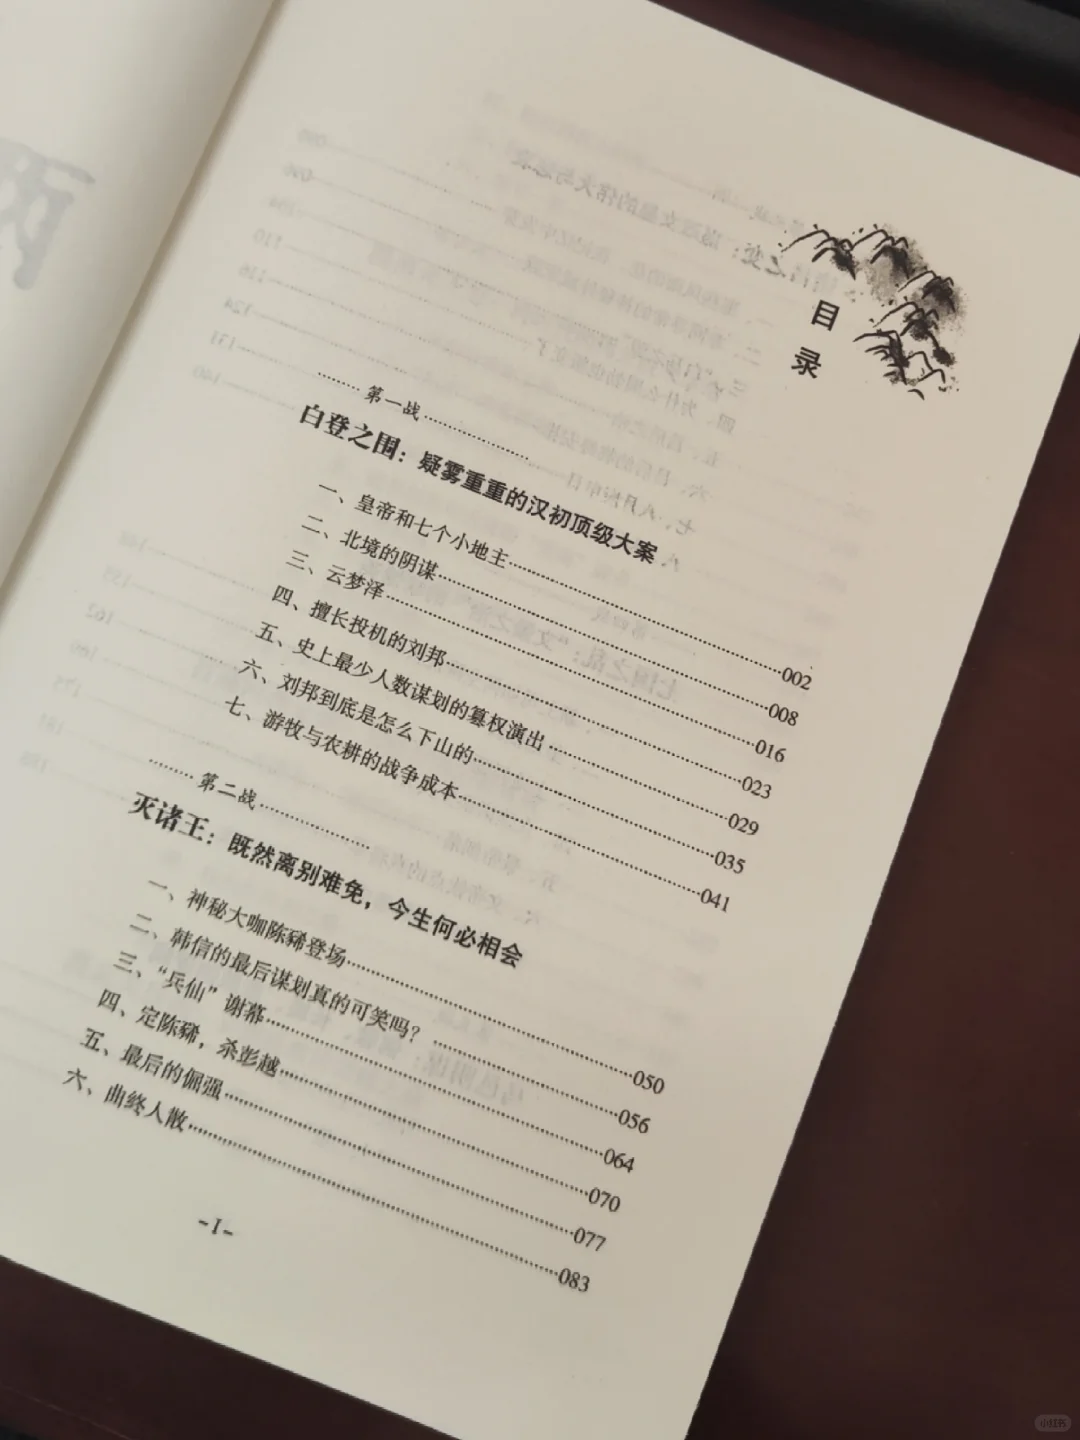 目
录
第一战
白登之围：疑雾重重的汉初顶级大案
一、皇帝和七个小地主………002
二、北境的阴谋………008
三、云梦泽………016
四、擅长投机的刘邦………023
五、史上最少人数谋划的篡权演出………029
六、刘邦到底是怎么下山的………035
七、游牧与农耕的战争成本………041
第二战
灭诸王：既然离别难免，今生何必相会
一、神秘大咖陈豨登场………050
二、韩信的最后谋划真的可笑吗？………056
三、“兵仙”谢幕………064
四、定陈豨，杀彭越………070
五、最后的倔强………077
六、曲终人散………083
-I-
小红书